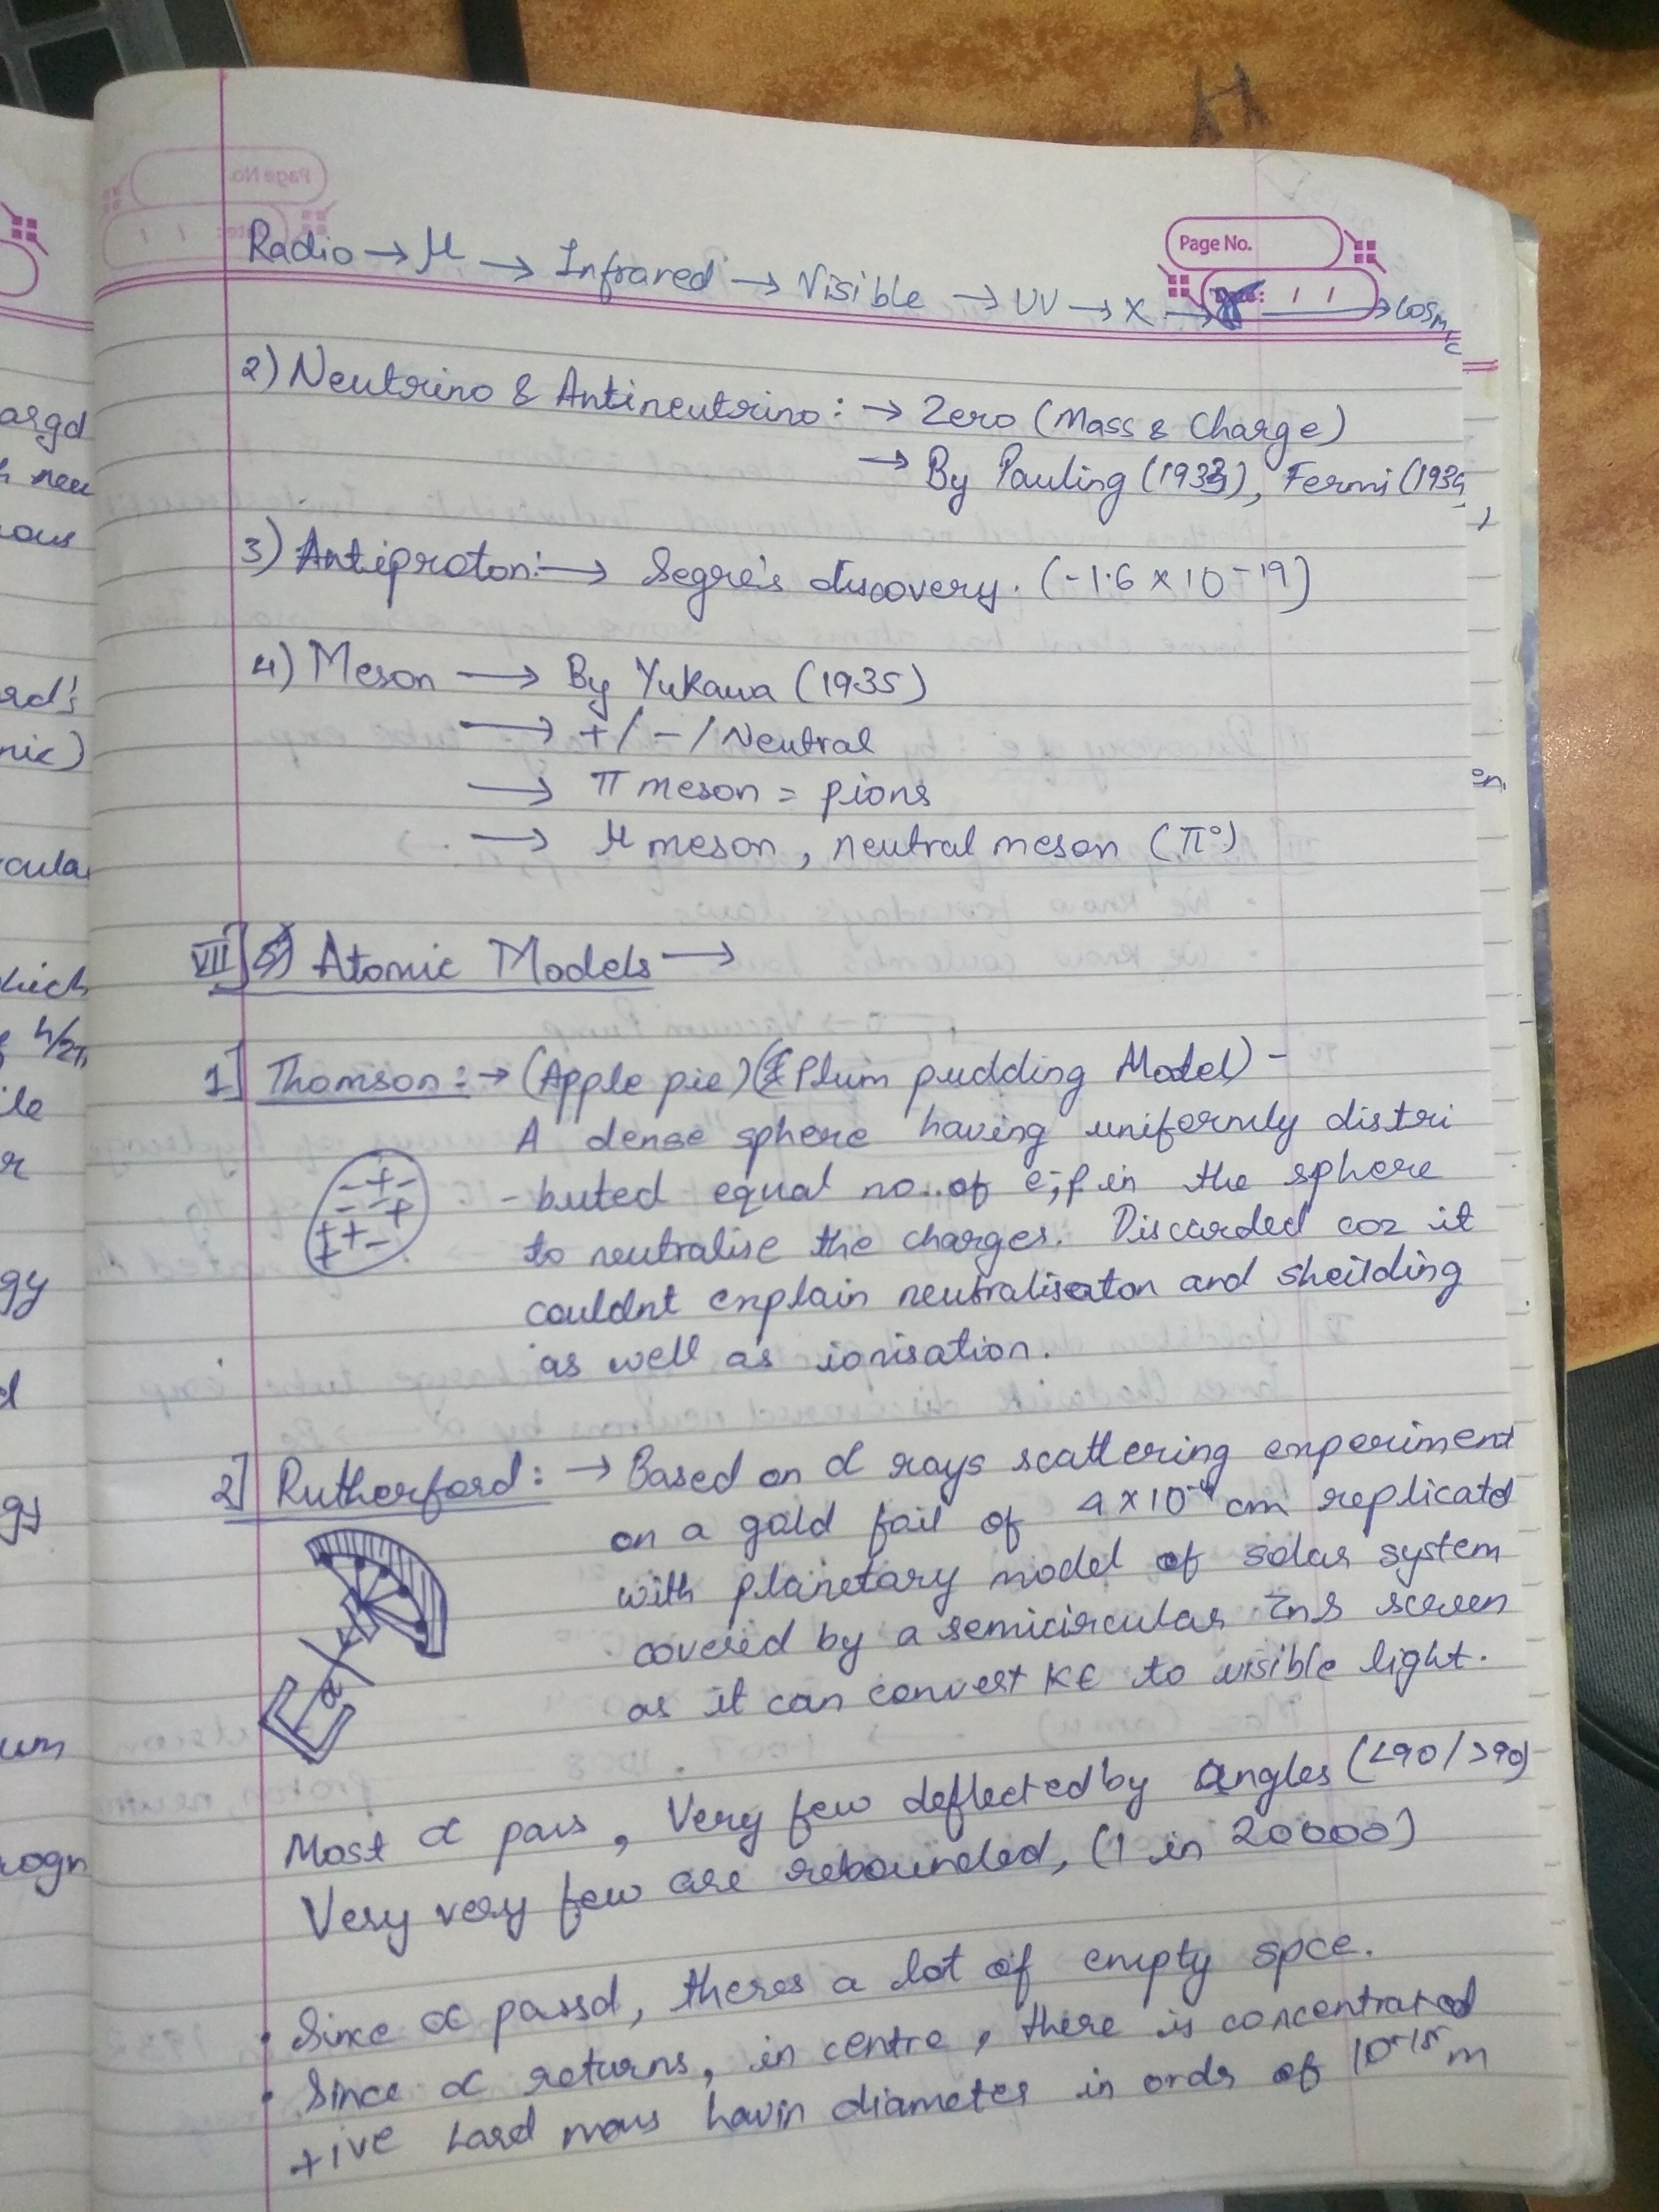 Page No.
Radio → μ → Infrared → Visible → UV → X → γ → cosmic
2) Neutrino & Antineutrino: → Zero (Mass & Charge)
→ By Pauling (1933), Fermi (1934)
3) Antiproton: → Segre's discovery. (-1.6 × 10-19)
4) Meson → By Yukawa (1935)
→ + / - / Neutral
→ π meson = pions
→ μ meson, neutral meson (π°)
VII] Atomic Models →
1] Thomson: → (Apple pie) (Plum pudding Model) -
A dense sphere having uniformly distri
- buted equal no. of e-, p in the sphere
to neutralise the charges. Discarded coz it
couldnt explain neutralisaton and sheilding
as well as ionisation.
- + -
- - +
+ + -
+
2] Rutherford: → Based on α rays scattering experiment
on a gold foil of 4 × 10-4 cm replicated
with planetary model of solar system
covered by a semicircular ZnS screen
as it can convert KE to visible light.
α
Most α pass, Very few deflected by Angles (<90 / >90)
Very very few are rebounded, (1 in 20000)
• Since α passd, theres a lot of empty spce.
• Since α returns, in centre, there is concentrated
+ive hard mass havin diameter in ordr of 10-15 m
argd
h neu
ous
rd's
nic)
cula
hich
h/2π
ile
r
gy
d
gy
um
ogn